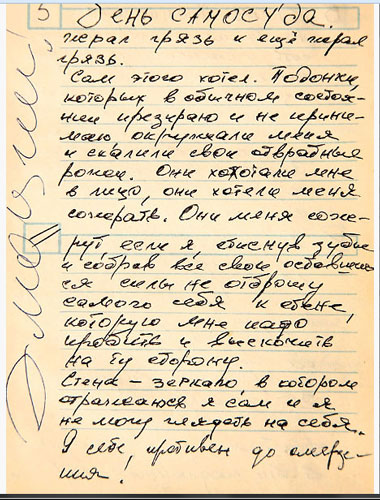 5 День самосуда.
жрал грязь и ещё жрал
грязь.
Сам этого хотел. Подонки,
которых в обычном состоя-
нии презираю и не прини-
маю, окружали меня
и скалили свои отвратные
рожи. Они хохотали мне
в лицо, они хотели меня
сожрать. Они меня сож-
рут, если я, стиснув зубы
и собрав все свои оставшие-
ся силы не отброшу
самого себя к стене,
которую мне надо
пробить и выскочить
на ту сторону.
Стена – зеркало, в котором
отражаюсь я сам и я
не могу глядеть на себя.
Я себе противен до омерзе-
ния!